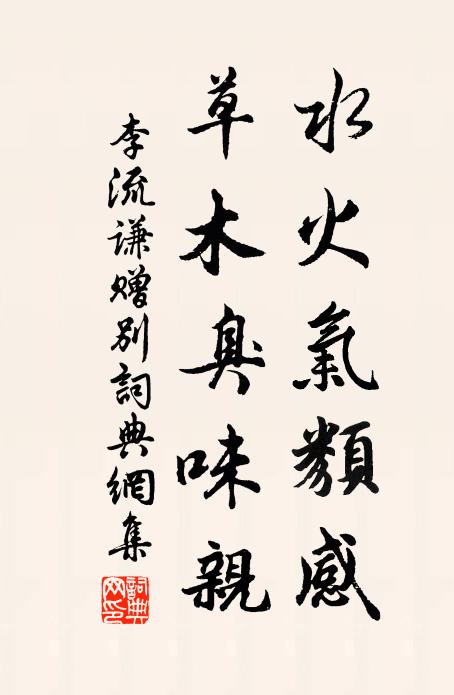 水火氣類感
草木臭味親
李流谦赠别詞典網集
詞典網印